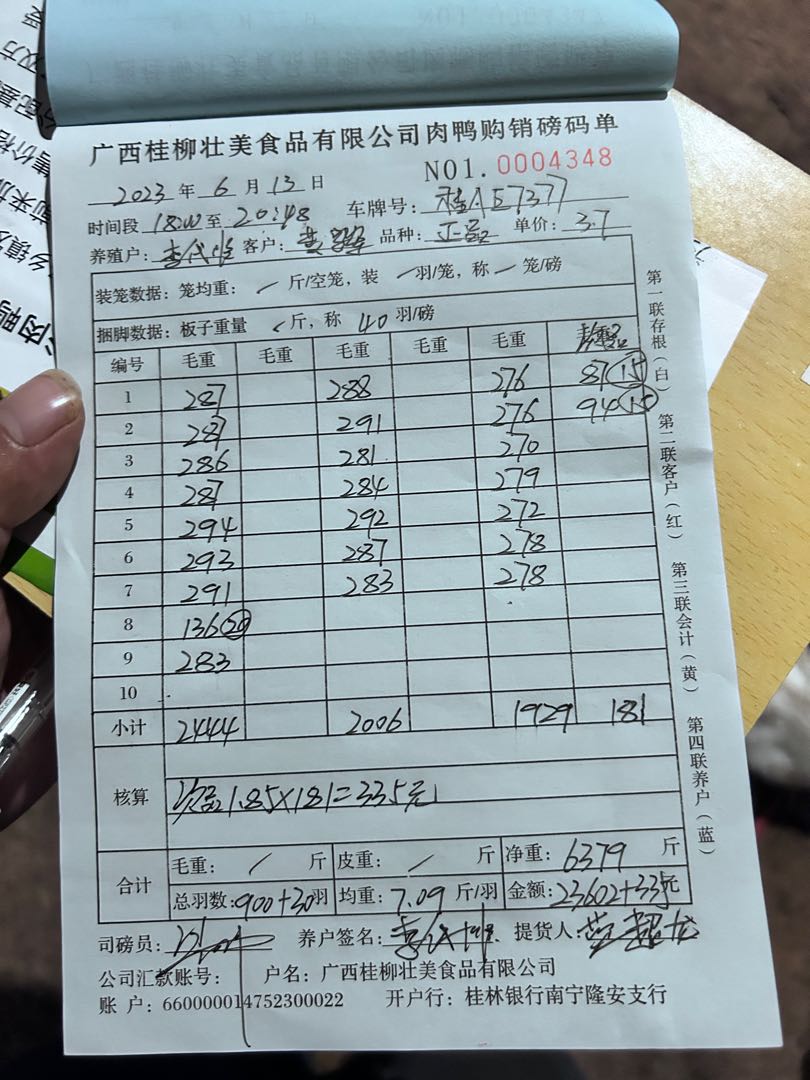 广西桂柳壮美食品有限公司肉鸭购销磅码单
NO1.0004348
2023年6月13日
时间段18:00至20:48 车牌号:桂AE7377
养殖户:李代 客户:黄 品种:正品 单价:3.7
装笼数据:笼均重:/斤/空笼,装/羽/笼,称/笼/磅
捆脚数据:板子重量/斤,称40羽/磅
编号 毛重 毛重 毛重 毛重 毛重
1 287 288 276 87(15)
2 287 291 276 94(15)
3 286 281 270
4 287 284 279
5 294 292 272
6 293 287 278
7 291 283 278
8 136(20)
9 283
10
小计 2444 2006 1929 181
核算 次品1.85×181=335元
合计 毛重:/斤 皮重:/斤 净重:6379斤
总羽数:900+30羽 均重:7.09斤/羽 金额:23602+335元
司磅员: 养户签名:李代 提货人:黄超龙
公司汇款账号: 户名:广西桂柳壮美食品有限公司
账户:660000014752300022 开户行:桂林银行南宁隆安支行
第一联存根(白)
第二联客户(红)
第三联会计(黄)
第四联养户(蓝)